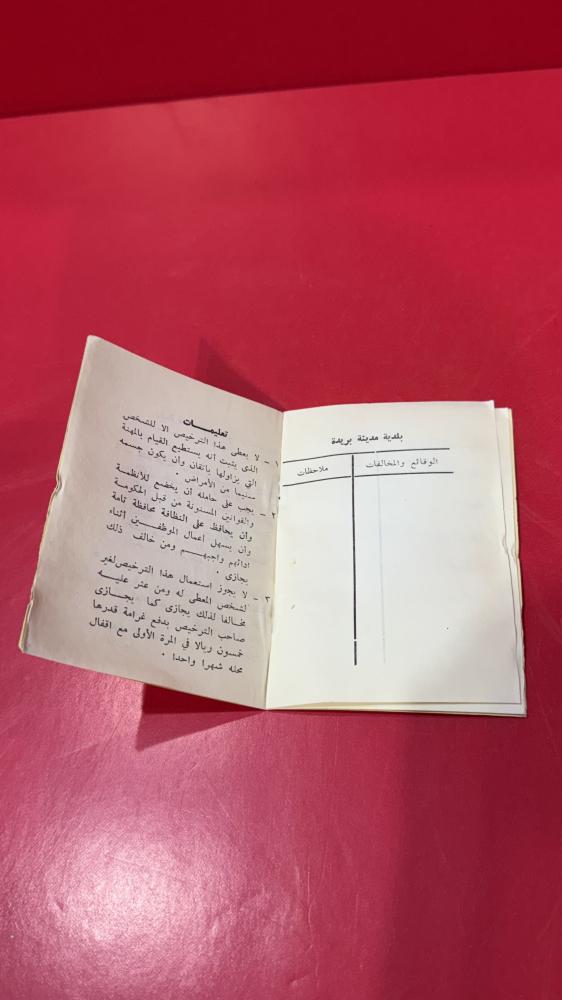 تعليمـــات
١ – لا يعطى هذا الترخيص الا للشخص
الذى يثبت أنه يستطيع القيام بالمهنة
التي يزاولها باتقان وأن يكون جسمه
سليما من الأمراض .
٢ – يجب على حامله أن يخضع للأنظمة
والقوانين المسنونة من قبل الحكومة
وأن يحافظ على النظافة محافظة تامة
وأن يسهل اعمال الموظفـــين أثناء
ادائهم واجبهـــم ومن خالف ذلك
يجازى .
٣ – لا يجوز استعمال هذا الترخيص لغير
الشخص المعطى له ومن عثر عليـــه
مخالفا لذلك يجازى كما يجـــازى
صاحب الترخيص بدفع غرامة قدرها
خمسون ريالا في المرة الأولى مع اقفال
محله شهرا واحدا .
بلدية مدينة بريدة
الوقائع والمخالفات
ملاحظات